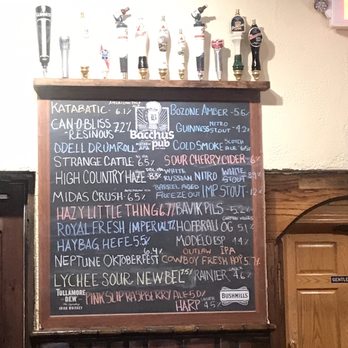 KATABATIC AMERICAN PALE 6.1/
CAN-O-BLISS 7.2/
RESINOUS
ODELL DRUMROLL
STRANGE CATTLE 6.5/
HIGH COUNTRY HAZE 6.5
MIDAS CRUSH 6.5/
HAZY LITTLE THING 6.7/
ROYAL FRESH IMPERIAL
HAYBAG HEFE 5.5/
NEPTUNE OKTOBERFEST 6.4/
LYCHEE SOUR NEW BEL 7.5/
PINK SLIP RASPBERRY ALE 5.0/
Bacchus
pub
BOZONE AMBER - 5.6/
GUINNESS NITRO STOUT 4.2/
COLD SMOKE SCOTCH ALE 6.5/
SOUR CHERRY CIDER
WHITE RUSSIAN NITRO WHITE STOUT
BARREL AGED
FREEZEOUT IMP STOUT
BAVIK PILS - 5.2/
HOFBRAU OG
MODELO ESP
OUTLAW IPA
COWBOY FRESH
RAINIER 4.6/
HARP 4.5/
TULLAMORE
DEW
IRISH WHISKEY
BUSHMILLS
GENTLE